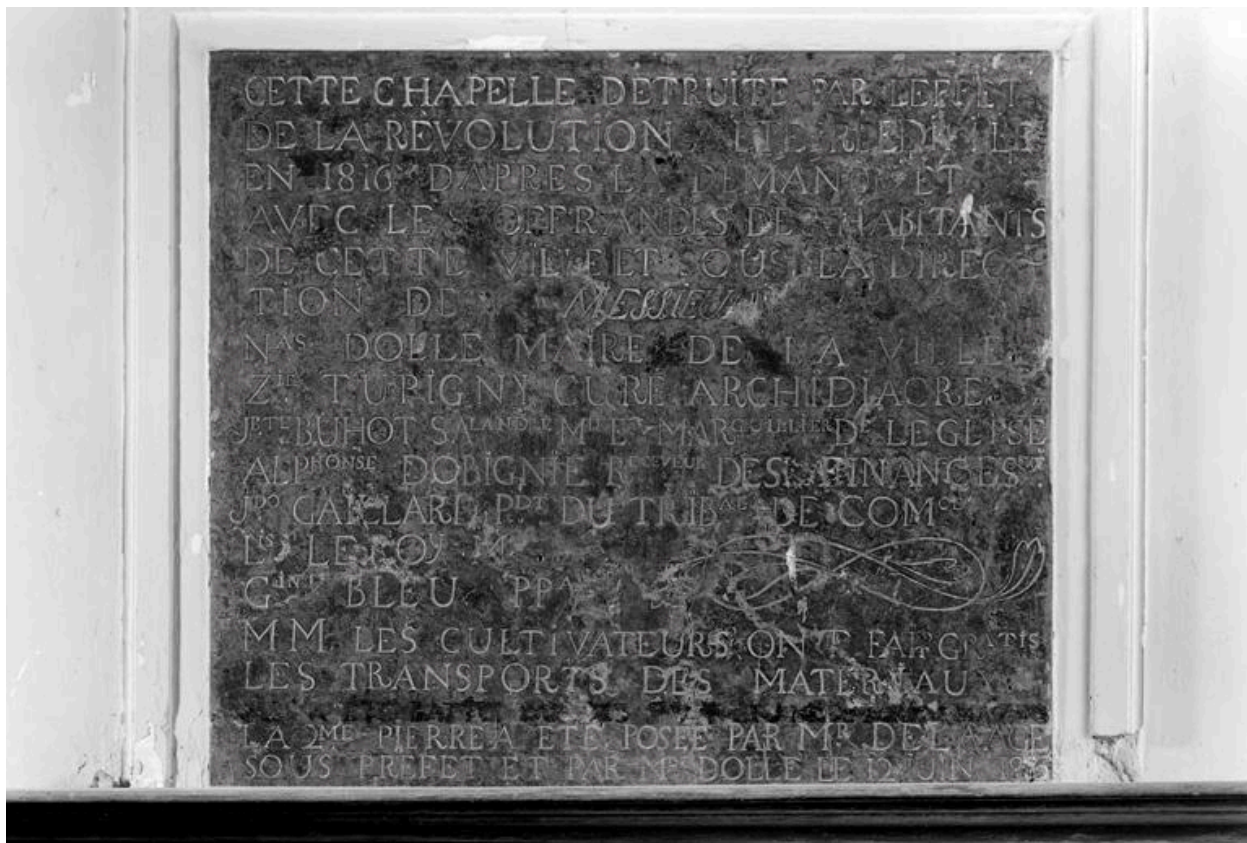 CETTE CHAPELLE DETRUITE PAR LEFFET
DE LA REVOLUTION REEDIFIEE
EN 1816 DAPRES LA DEMANDE ET
AVEC LES OFFRANDES DES HABITANTS
DE CETTE VILLE ET SOUS LA DIREC
TION DE MESSIEURS
NAS DOLLE MAIRE DE LA VILLE
TUPIGNY CURE ARCHIDIACRE
JBTE BUHOT MARGUILLIER DE LEGLISE
ALPHONSE DOBIGNIE RECEVEUR DES FINANCES
GAILLARD PDT DU TRIBAL DE COMCE
LS
BLEU
MM LES CULTIVATEURS ONT FAIT GRATIS
LES TRANSPORTS DES MATERIAUX
LA 2ME PIERRE A ETE POSEE PAR MR
SOUS PREFET ET PAR MR DOLLE LE 12 JUIN